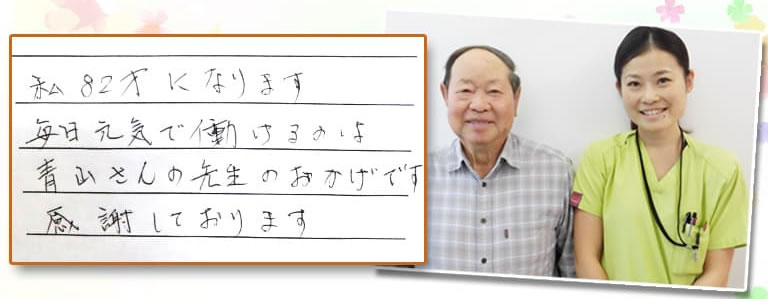 私82才になります
毎日元気で働けるのは
青山さんの先生のおかげです
感謝しております